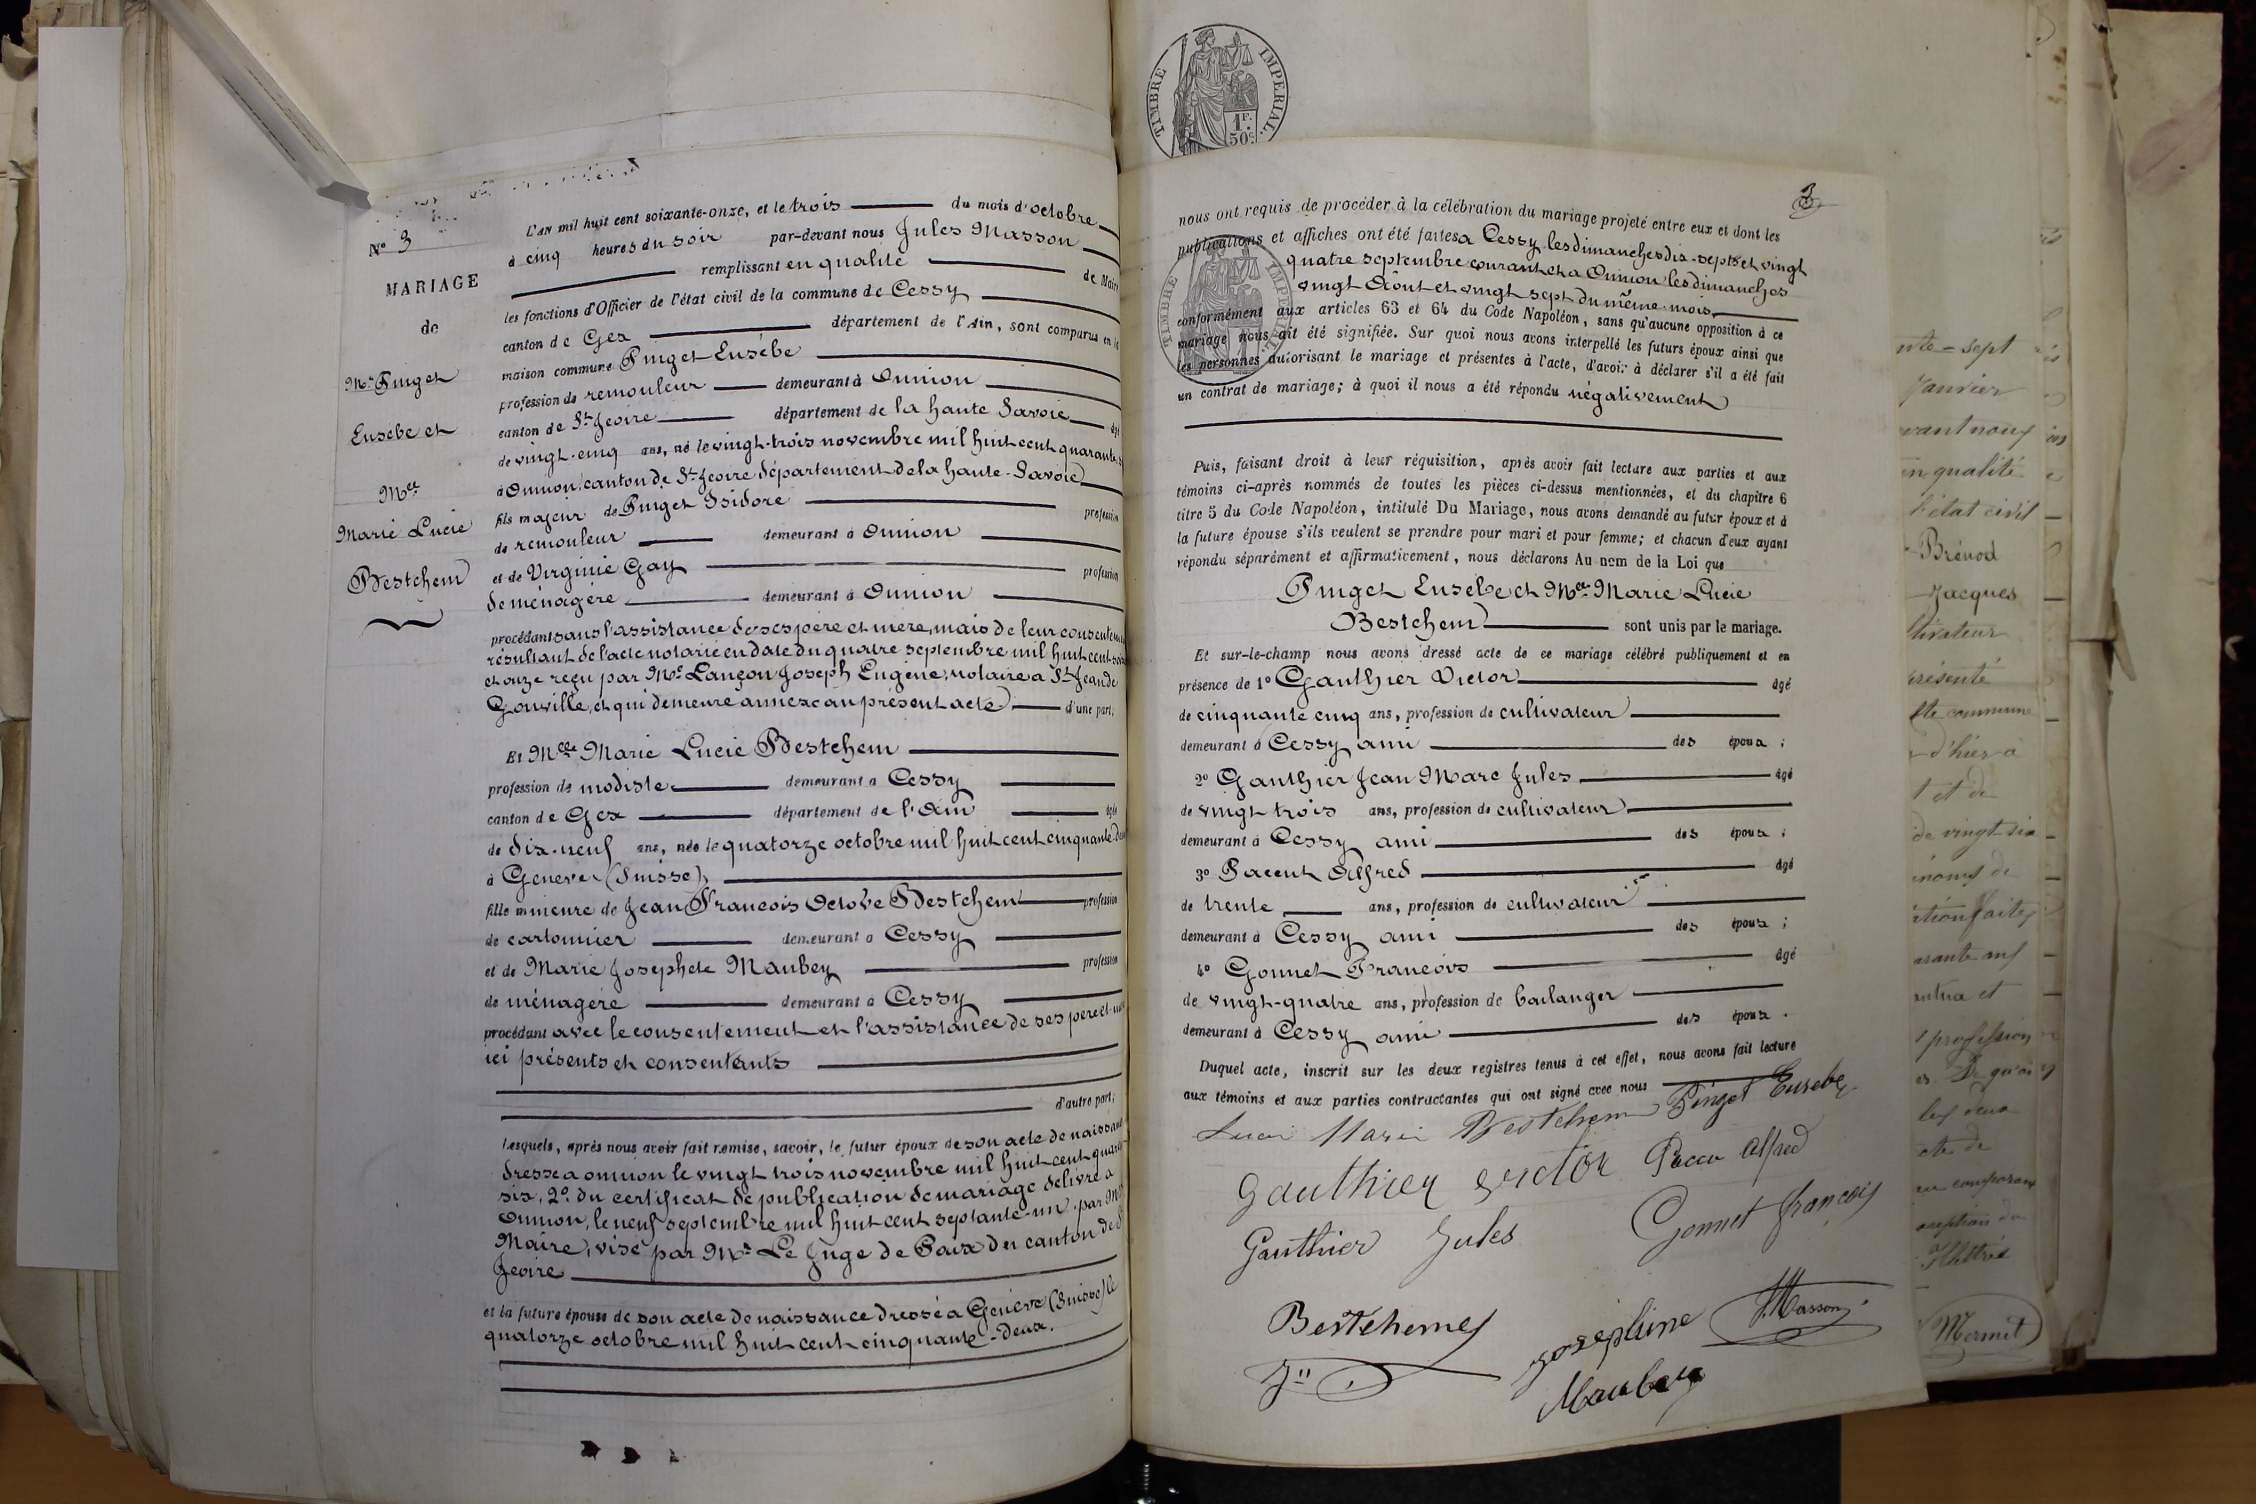 N° 3
MARIAGE
de
Mr Pinget
Eusèbe et
Melle
Marie Lucie
Bestchem
L'AN mil huit cent soixante-onze, et le trois du mois d'octobre
à cinq heures du soir par-devant nous Jules Masson
remplissant en qualité de Maire
les fonctions d'Officier de l'état civil de la commune de Cessy
canton de Gex département de l'Ain, sont comparus en la
maison commune Pinget Eusèbe
profession de remouleur demeurant à Onnion
canton de St Jeoire département de la haute Savoie âgé
de vingt-cinq ans, né le vingt-trois novembre mil huit cent quarante
à Onnion, canton de St Jeoire département de la haute-Savoie
fils majeur de Pinget Isidore profession
de remouleur demeurant à Onnion
et de Virginie Gay profession
de ménagère demeurant à Onnion
procédant sans l'assistance de ses père et mère, mais de leur consentement
résultant de l'acte notarié en date du quatre septembre mil huit cent soix
et onze reçu par Me Lançon Joseph Eugène, notaire à St Jean de
Gonville, et qui demeure annexé au présent acte d'une part;
Et Melle Marie Lucie Bestchem
profession de modiste demeurant à Cessy
canton de Gex département de l'Ain âgée
de dix-neuf ans, née le quatorze octobre mil huit cent cinquante-deux
à Genève (Suisse)
fille mineure de Jean François Octobe Bestchem profession
de cartonnier demeurant à Cessy
et de Marie Josephete Maubey profession
de ménagère demeurant à Cessy
procédant avec le consentement et l'assistance de ses père et mère
ici présents et consentants
d'autre part;
Lesquels, après nous avoir fait remise, savoir, le futur époux de son acte de naissance
dressé à onnion le vingt trois novembre mil huit cent quarante
six, 2° du certificat de publication de mariage délivré à
Onnion, le neuf septembre mil huit cent septante-un par Mr
Maire, visé par Mr Le Juge de Paix du canton de St
Jeoire
et la future épouse de son acte de naissance dressé à Genève (Suisse) le
quatorze octobre mil huit cent cinquante-deux.
TIMBRE IMPERIAL.
1F.
50c
3
nous ont requis de procéder à la célébration du mariage projeté entre eux et dont les
publications et affiches ont été faites à Cessy les dimanches dix-sept et vingt
quatre septembre courant et à Onnion les dimanches
vingt Août et vingt sept du même mois,
conformément aux articles 63 et 64 du Code Napoléon, sans qu'aucune opposition à ce
mariage nous ait été signifiée. Sur quoi nous avons interpellé les futurs époux ainsi que
les personnes autorisant le mariage et présentes à l'acte, d'avoir à déclarer s'il a été fait
un contrat de mariage; à quoi il nous a été répondu négativement
TIMBRE IMPERIAL
Puis, faisant droit à leur réquisition, après avoir fait lecture aux parties et aux
témoins ci-après nommés de toutes les pièces ci-dessus mentionnées, et du chapitre 6
titre 5 du Code Napoléon, intitulé Du Mariage, nous avons demandé au futur époux et à
la future épouse s'ils veulent se prendre pour mari et pour femme; et chacun d'eux ayant
répondu séparément et affirmativement, nous déclarons Au nom de la Loi que
Pinget Eusèbe et Melle Marie Lucie
Bestchem sont unis par le mariage.
Et sur-le-champ nous avons dressé acte de ce mariage célébré publiquement et en
présence de 1° Gauthier Victor âgé
de cinquante cinq ans, profession de cultivateur
demeurant à Cessy ami des époux;
2° Gauthier Jean Marc Jules âgé
de vingt trois ans, profession de cultivateur
demeurant à Cessy ami des époux;
3° Paccut Alfred âgé
de trente ans, profession de cultivateur
demeurant à Cessy ami des époux;
4° Gonnet François âgé
de vingt-quatre ans, profession de boulanger
demeurant à Cessy ami des époux.
Duquel acte, inscrit sur les deux registres tenus à cet effet, nous avons fait lecture
aux témoins et aux parties contractantes qui ont signé avec nous
Luci Marie Bestchem Pinget Eusebe
Gauthier Victor Paccu Alfred
Gauthier Jules Gonnet françois
Bestchemes
Josephine
Maubey
JMasson
nte-sept
Janvier
vant nous
en qualité
l'état civil
Brénod
Jacques
tivateur
présenté
tte commune
d'hier a
t et de
de vingt-six
inoms de
arante ans
profession
les deux
cte de
Mermet